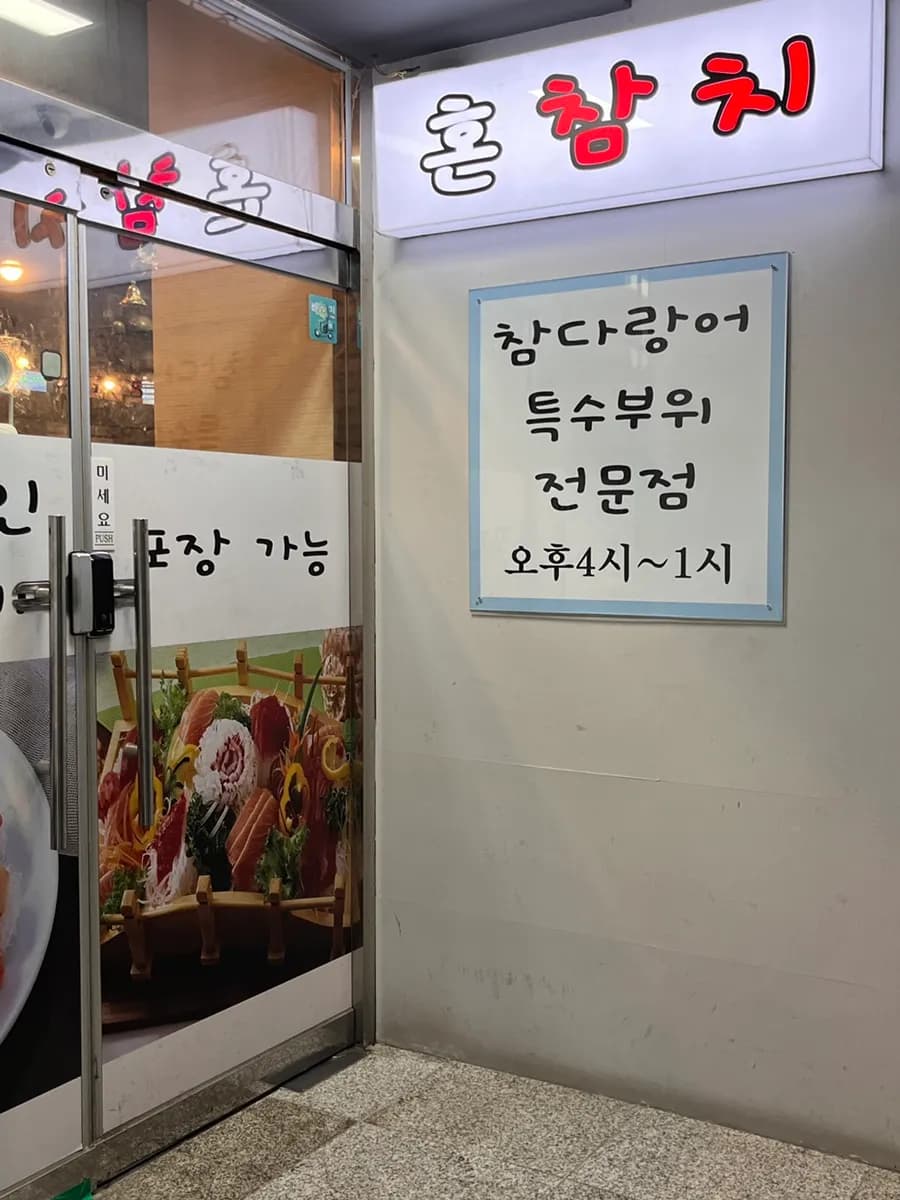 혼 참치
참다랑어
특수부위
전문점
오후4시~1시
미세요
PUSH
포장 가능